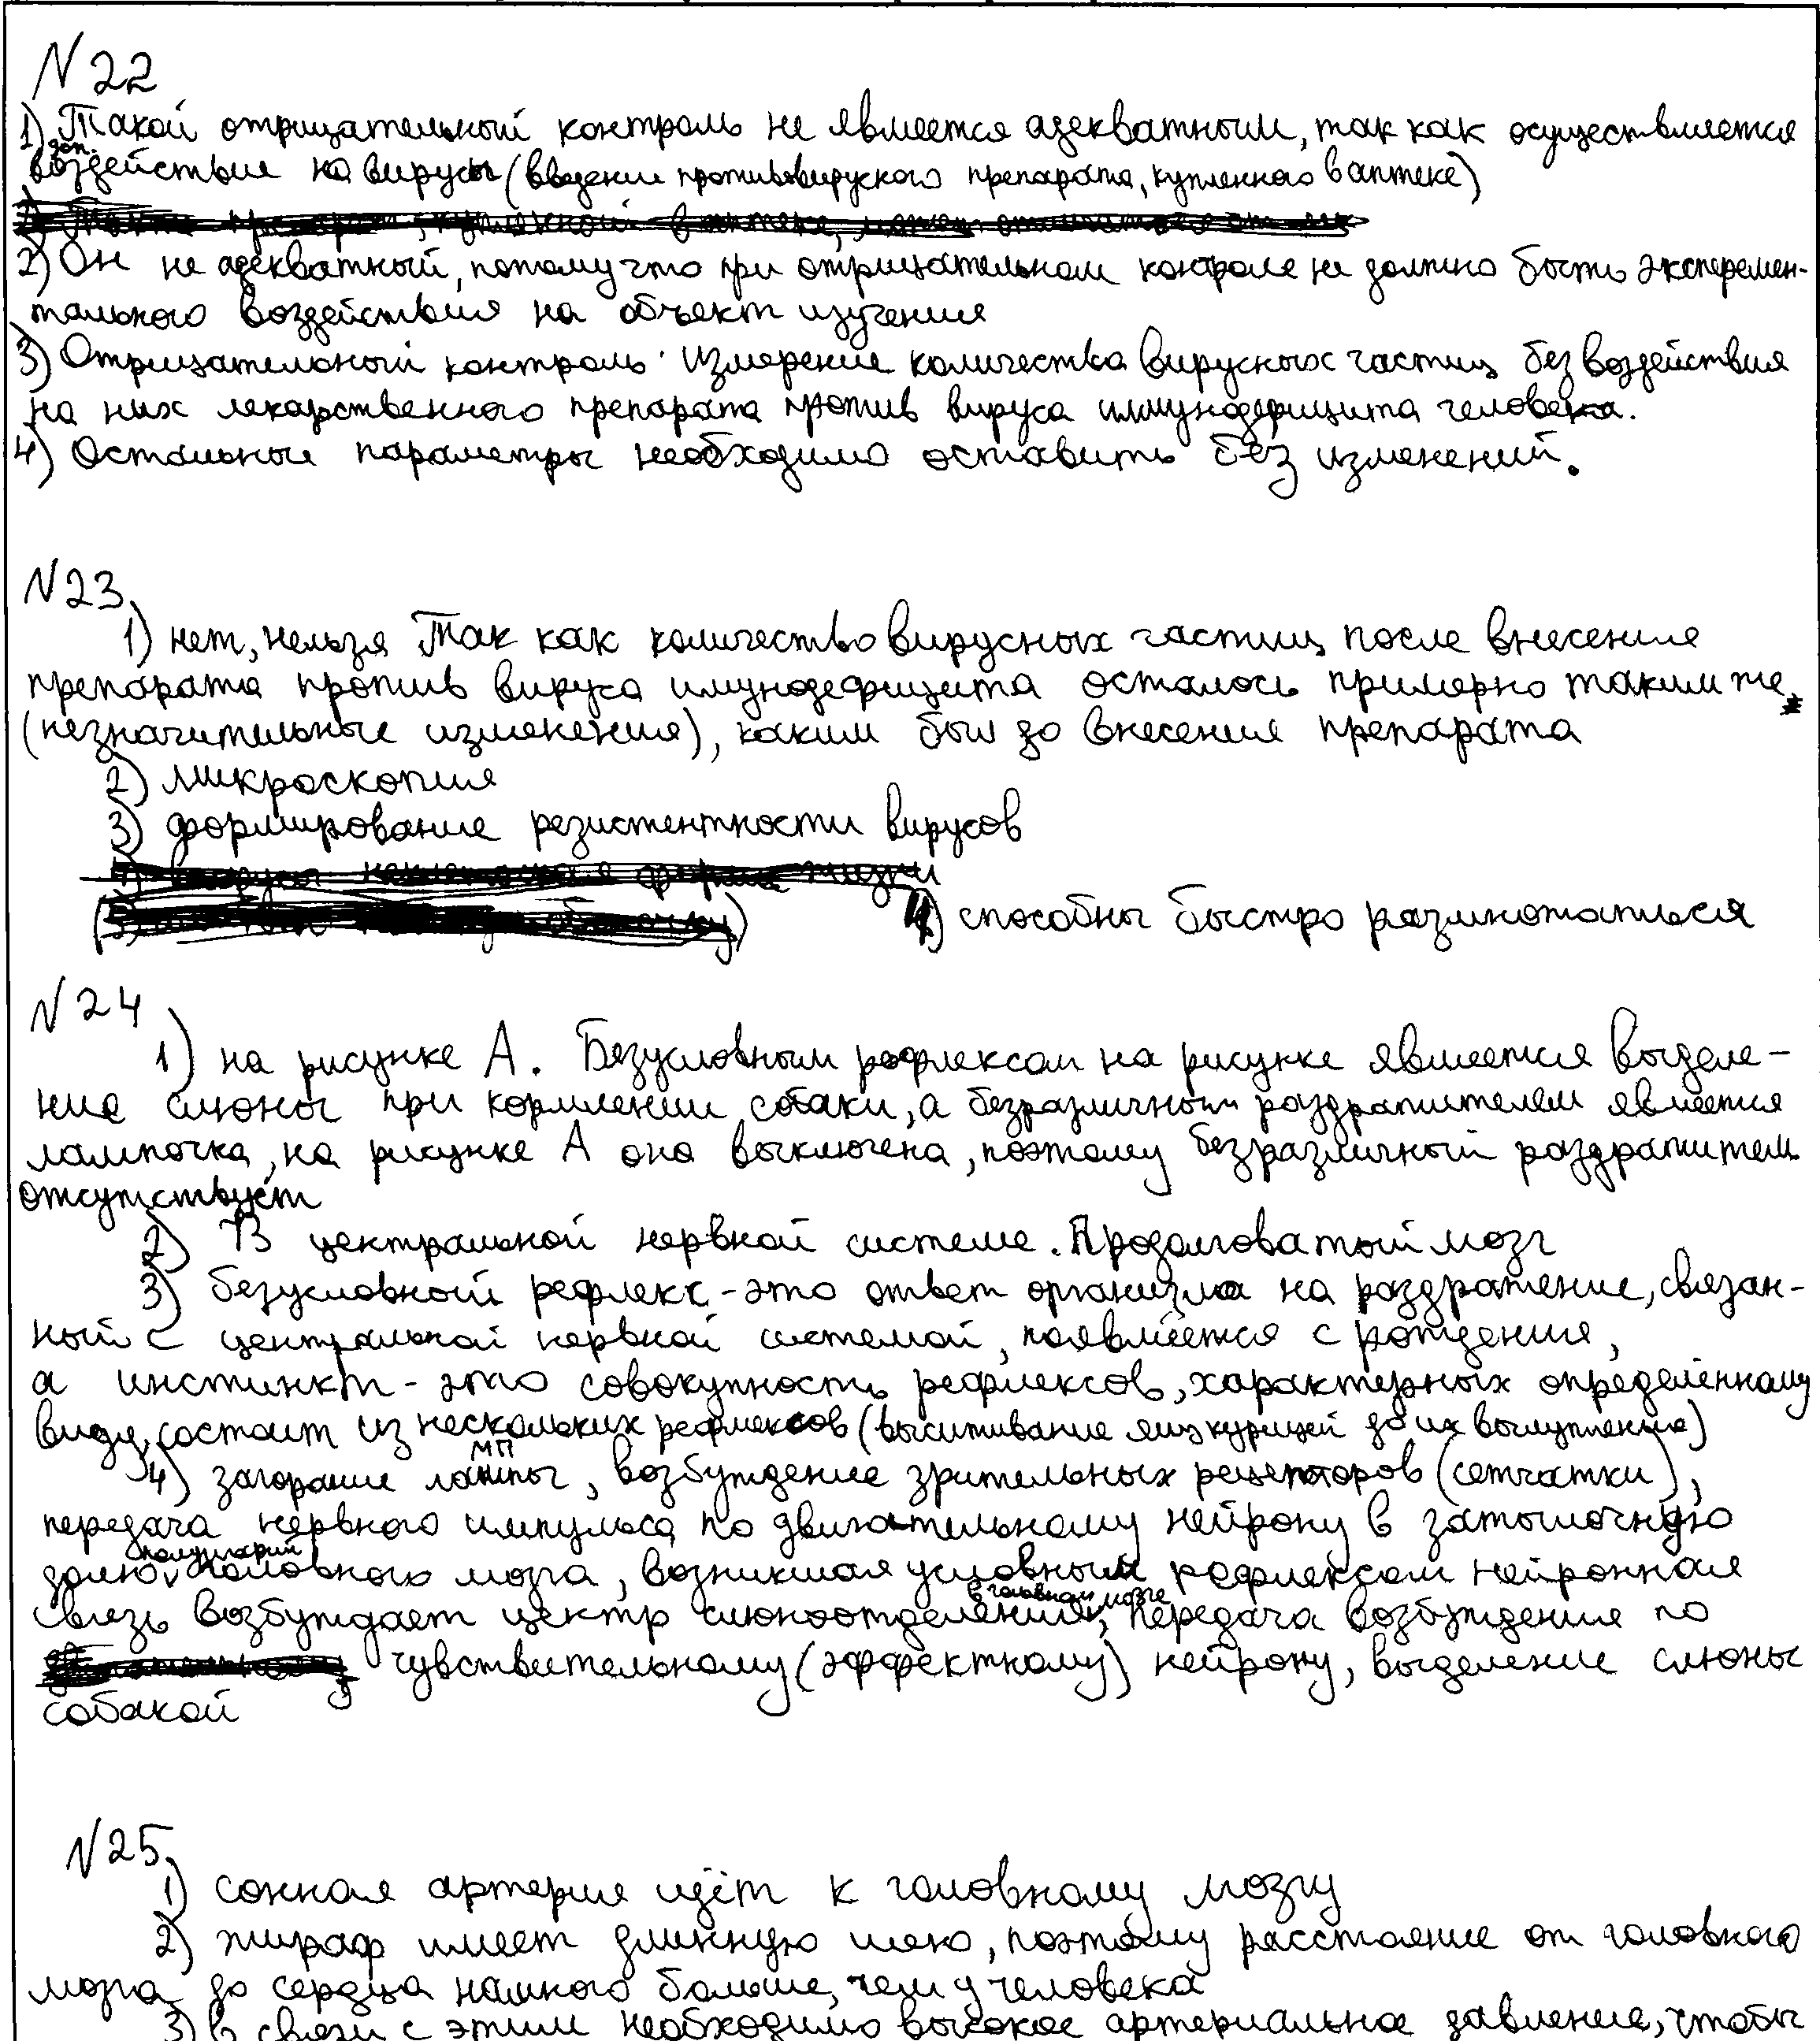 N 22
1) Такой отрицательный контроль не является адекватным, так как осуществляется
доп.
воздействие на вирусы (введении противовируского препарата, купленного в аптеке)
2) Он не адекватный, потому что при отрицательном контроле не должно быть эксперемен-
тального воздействия на объект изучения
3) Отрицательный контроль: измерение количества вирусных частиц без воздействия
на них лекарственного препарата против вируса иммунодефицита человека.
4) Остальные параметры необходимо оставить без изменений.
N23
1) нет, нельзя Так как количество вирусных частиц после внесения
препарата против вируса имунодефицита осталось примерно таким же
(незначительные изменения), каким был до внесения препарата
2) микроскопия
3) формирование резистентности вирусов
4) способны быстро размножаться
N 24
1) на рисунке А. Безусловным рефлексом на рисунке является выделе-
ние слюны при кормлении собаки, а безразличным раздражителем является
лампочка, на рисунке А она выключена, поэтому безразличный раздражитель
отсутствует
2) В центральной нервной системе. Продолговатый мозг
3) безусловный рефлекс - это ответ организма на раздражение, связан-
ный с центральной нервной системой, появляется с рождения,
а инстинкт - это совокупность рефлексов, характерных определённому
виду, состоит из нескольких рефлексов (высиживание яиц курицей до их вылупления)
4) загорание лампы, возбуждение зрительных рецепторов (сетчатки),
передача нервного импульса по двигательному нейрону в затылочную
долю полушарий головного мозга, возникшая условным рефлексом нейронная
связь возбуждает центр слюноотделения в головном мозге, передача возбуждения по
чувствительному (эффектному) нейрону, выделение слюны
собакой
N25
1) сонная артерия идёт к головному мозгу
2) жираф имеет длинную шею, поэтому расстояние от головного
мозга до сердца намного больше, чем у человека
3) в связи с этим необходимо высокое артериальное давление, чтобы